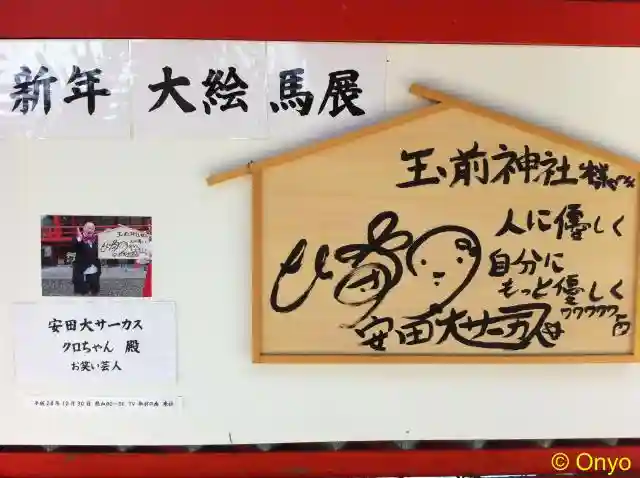 新年 大絵馬展
玉前神社様
人に優しく
自分に
もっと優しく
ワワワワワ
安田大サーカス
安田大サーカス
クロちゃん 殿
お笑い芸人
© Onyo